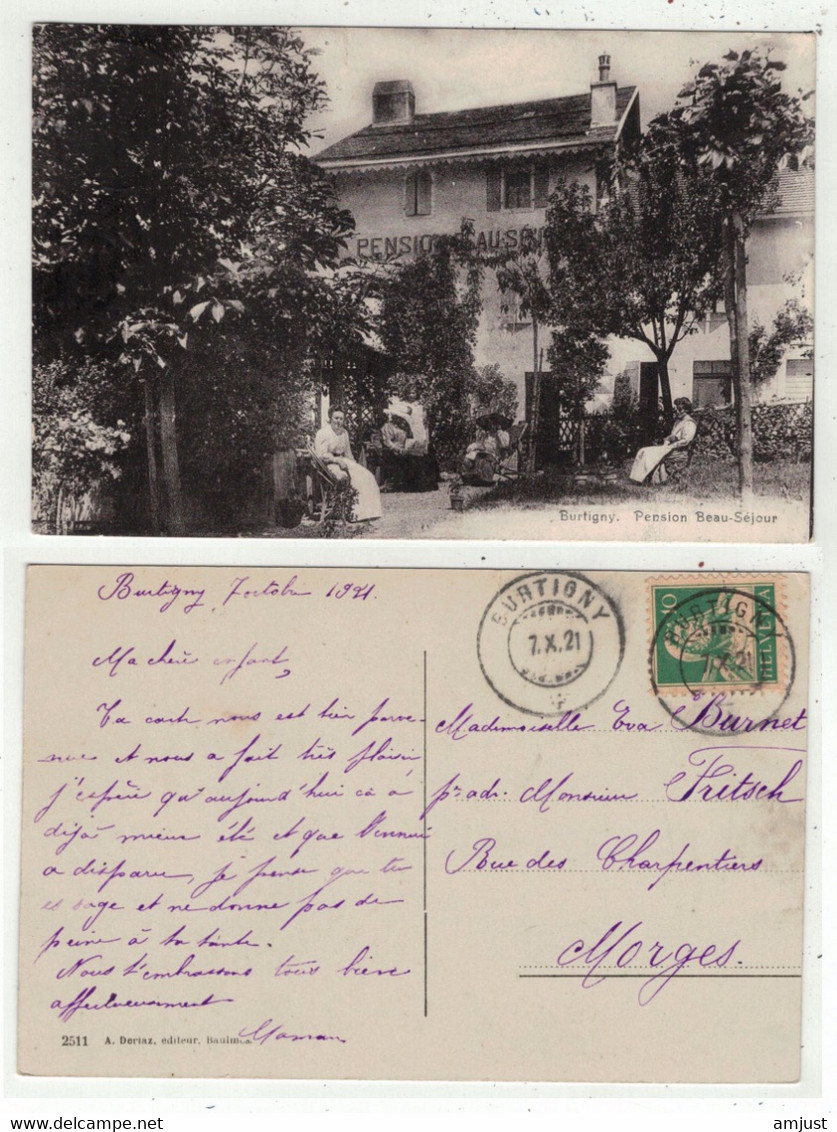 PENSION BEAU-SÉJOUR
Burtigny. Pension Beau-Séjour
Burtigny 7 octobre 1921.
BURTIGNY
7.X.21
10
HELVETIA
BURTIGNY
7.X.21
Ma chère enfant,
Ta carte nous est bien parve-
nue et nous a fait très plaisir
j'espère qu'aujourd'hui ça a
déjà mieux été et que l'ennui
a disparu, je pense que tu
es sage et ne donne pas de
peine à ta tante.
Nous t'embrassons tous bien
affectueusement
Maman
Mademoiselle Eva Burnet
pr adr. Monsieur Fritsch
Rue des Charpentiers
Morges.
2511 A. Deriaz, editeur, Baulmes
www.delcampe.net
amjust